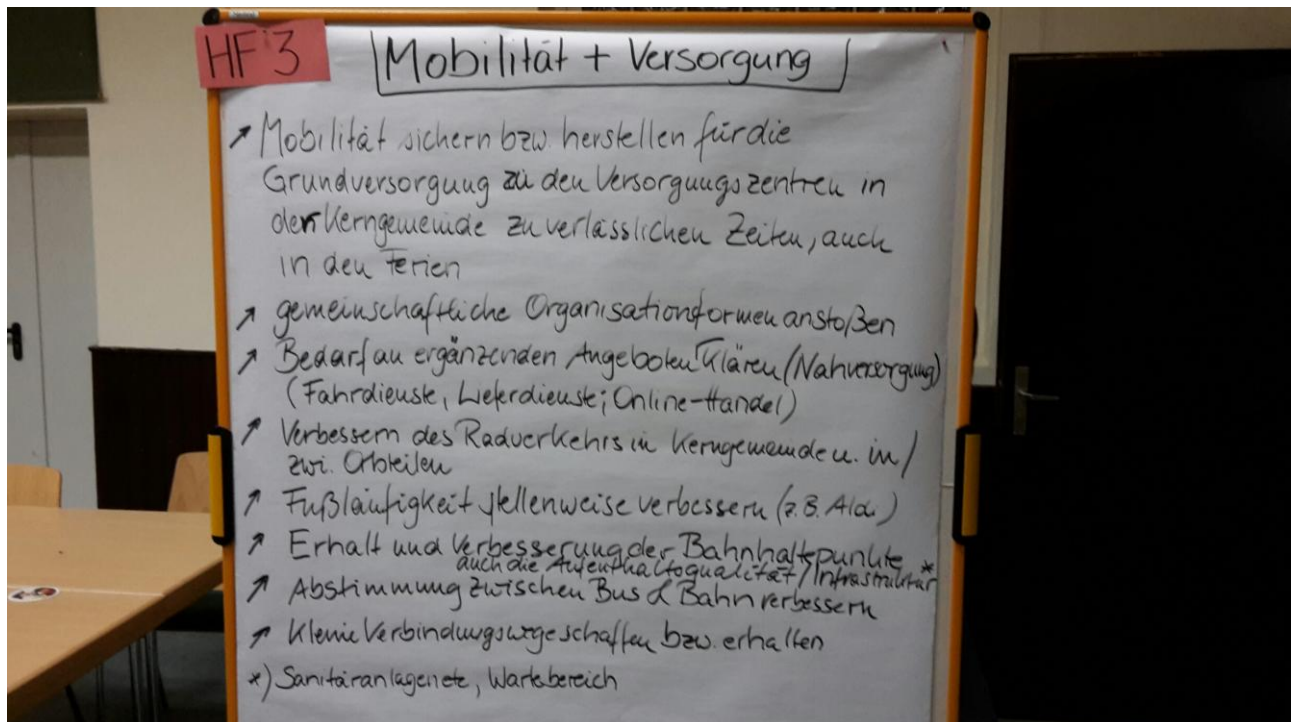 HF 3
Mobilität + Versorgung
↗ Mobilität sichern bzw. herstellen für die
Grundversorgung zu den Versorgungszentren in
der Kerngemeinde zu verlässlichen Zeiten, auch
in den Ferien
↗ gemeinschaftliche Organisationsformen anstoßen
↗ Bedarf an ergänzenden Angeboten klären (Nahversorgung)
(Fahrdienste, Lieferdienste; Online-Handel)
↗ Verbessern des Radverkehrs in Kerngemeinde u. in /
zwi. Ortsteilen
↗ Fußläufigkeit stellenweise verbessern (z.B. )
↗ Erhalt und Verbesserung der Bahnhaltepunkte *
auch die Aufenthaltsqualität / Infrastruktur
↗ Abstimmung zwischen Bus & Bahn verbessern
↗ Kleine Verbindungswege schaffen bzw. erhalten
*) Sanitäranlagen etc, Wartebereich